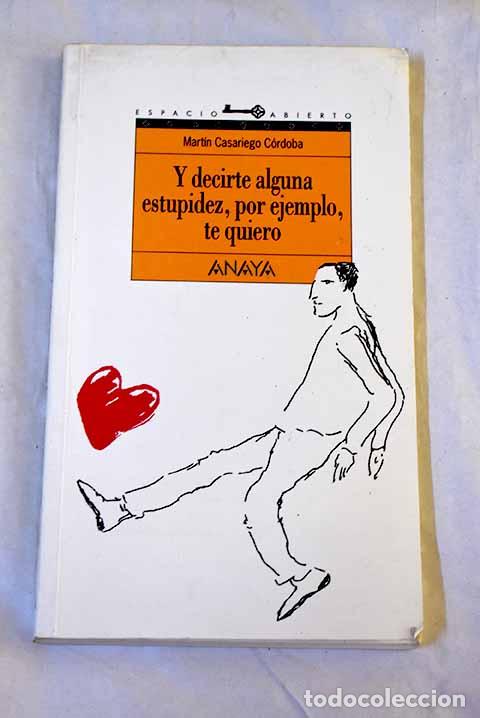 ESPACIO ABIERTO
Martín Casariego Córdoba
Y decirte alguna
estupidez, por ejemplo,
te quiero
ANAYA
todocoleccion